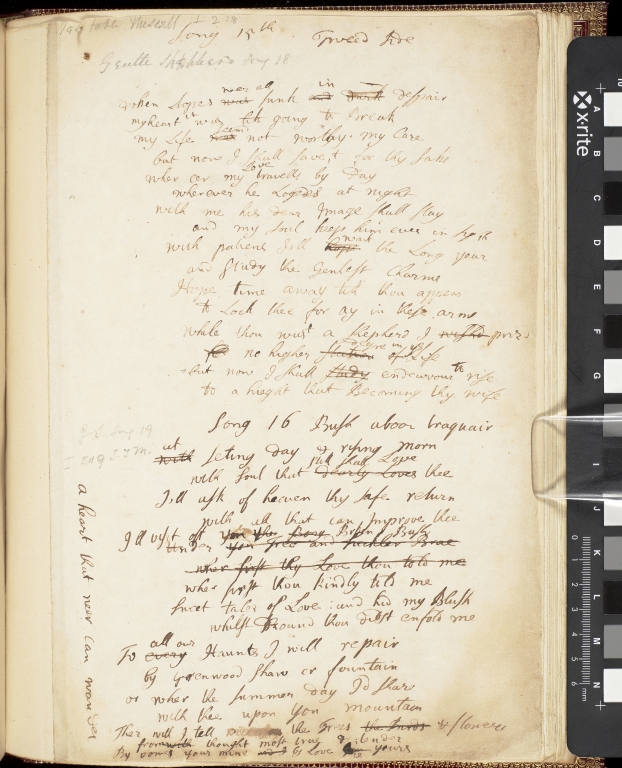 Song 15th Tweed side
Gentle Shepherd Song 18
when hopes were all sunk in despair
my heart it was going to break
my Life seem not worthy my Care
but now I shall save't for thy sake
wher eer my Love travells by Day
wherever he Logeds at night
with me his dear Image shall stay
and my soul keep him ever in
with patiens I'll wait the Long year
and study the Genlest Charms
Hope time away till thou appear
to Lock thee for ay in these arms
while thou was't a shepherd I prized
no higher degree in Life
but now I shall endeavour to rise
to a hight that Becoming thy wife
Song 16 Bush aboon traquair
at seting day & rysing morn
with soul that still shall Love thee
I'll ask of heaven thy safe return
with all that can Improve thee
I'll visit oft Birken Bush
wher first thy Love thou told me
wher first thou kindly told me
sweet tales of Love and hid my Blush
whilst Round thou didst enfold me
To all our Haunts I will repair
by Greenwood Shaw or fountain
or wher the summer day I'd share
with thee upon yon mountain
Ther will I tell the Trees & flowers
from thought most true & tender
By vows your mine & Love yours
a heart that neer can wander
x·rite
A
B
C
D
E
F
G
I
J
K
L
M
N
0 1 2 3 4 5 6 mm